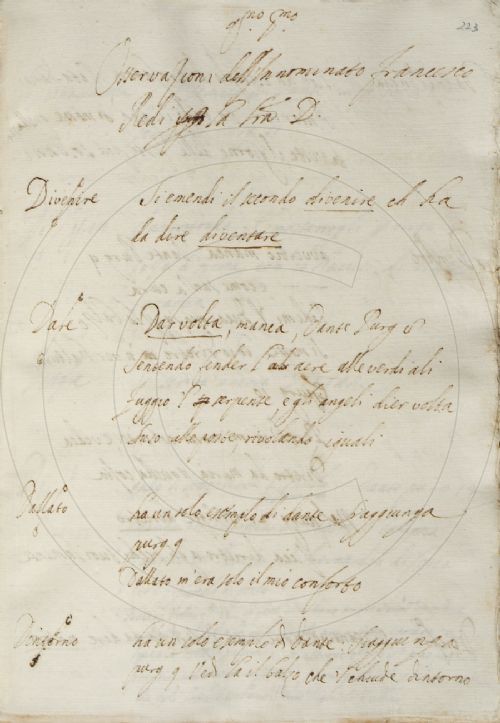 223
Osservazioni dell'Innominato francesco
Redi la D.
Divenire Si emendi il secondo divenire ed ha
da dire diventare
Dare Dar volta, manca, Dante Purg 8
Sentendo fender l' aere alle verdi ali
fuggio l' serpente, e gli angeli dier volta
suso alle poste rivolando iguali
Dallato ha un solo esemplo di dante s'aggiunga
purg. 9
Dallato m'era solo il mio conforto
Dintorno ha un solo esemplo di Dante s'aggiunga
purg 9 vedi la il balzo che 'l chiude dintorno